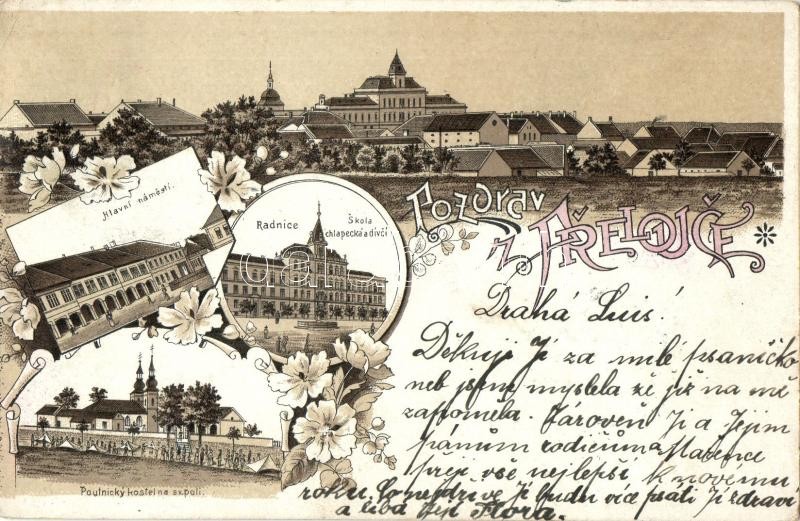 Pozdrav
z Přelouče
Hlavní náměstí.
Radnice
Škola
chlapecká a dívčí
Poutnický kostel na sv. poli.
Drahá Luis!
Děkuji Ji za milé psaníčko
neb jsem myslela že již na mě
zapoměla. Zároveň Jí a Jejím
pánům rodičům a Mařence
přeji vše nejlepší k novému
roku. Co nejdříve Ji budu více psáti Ji zdraví
a líbá Její Flora.